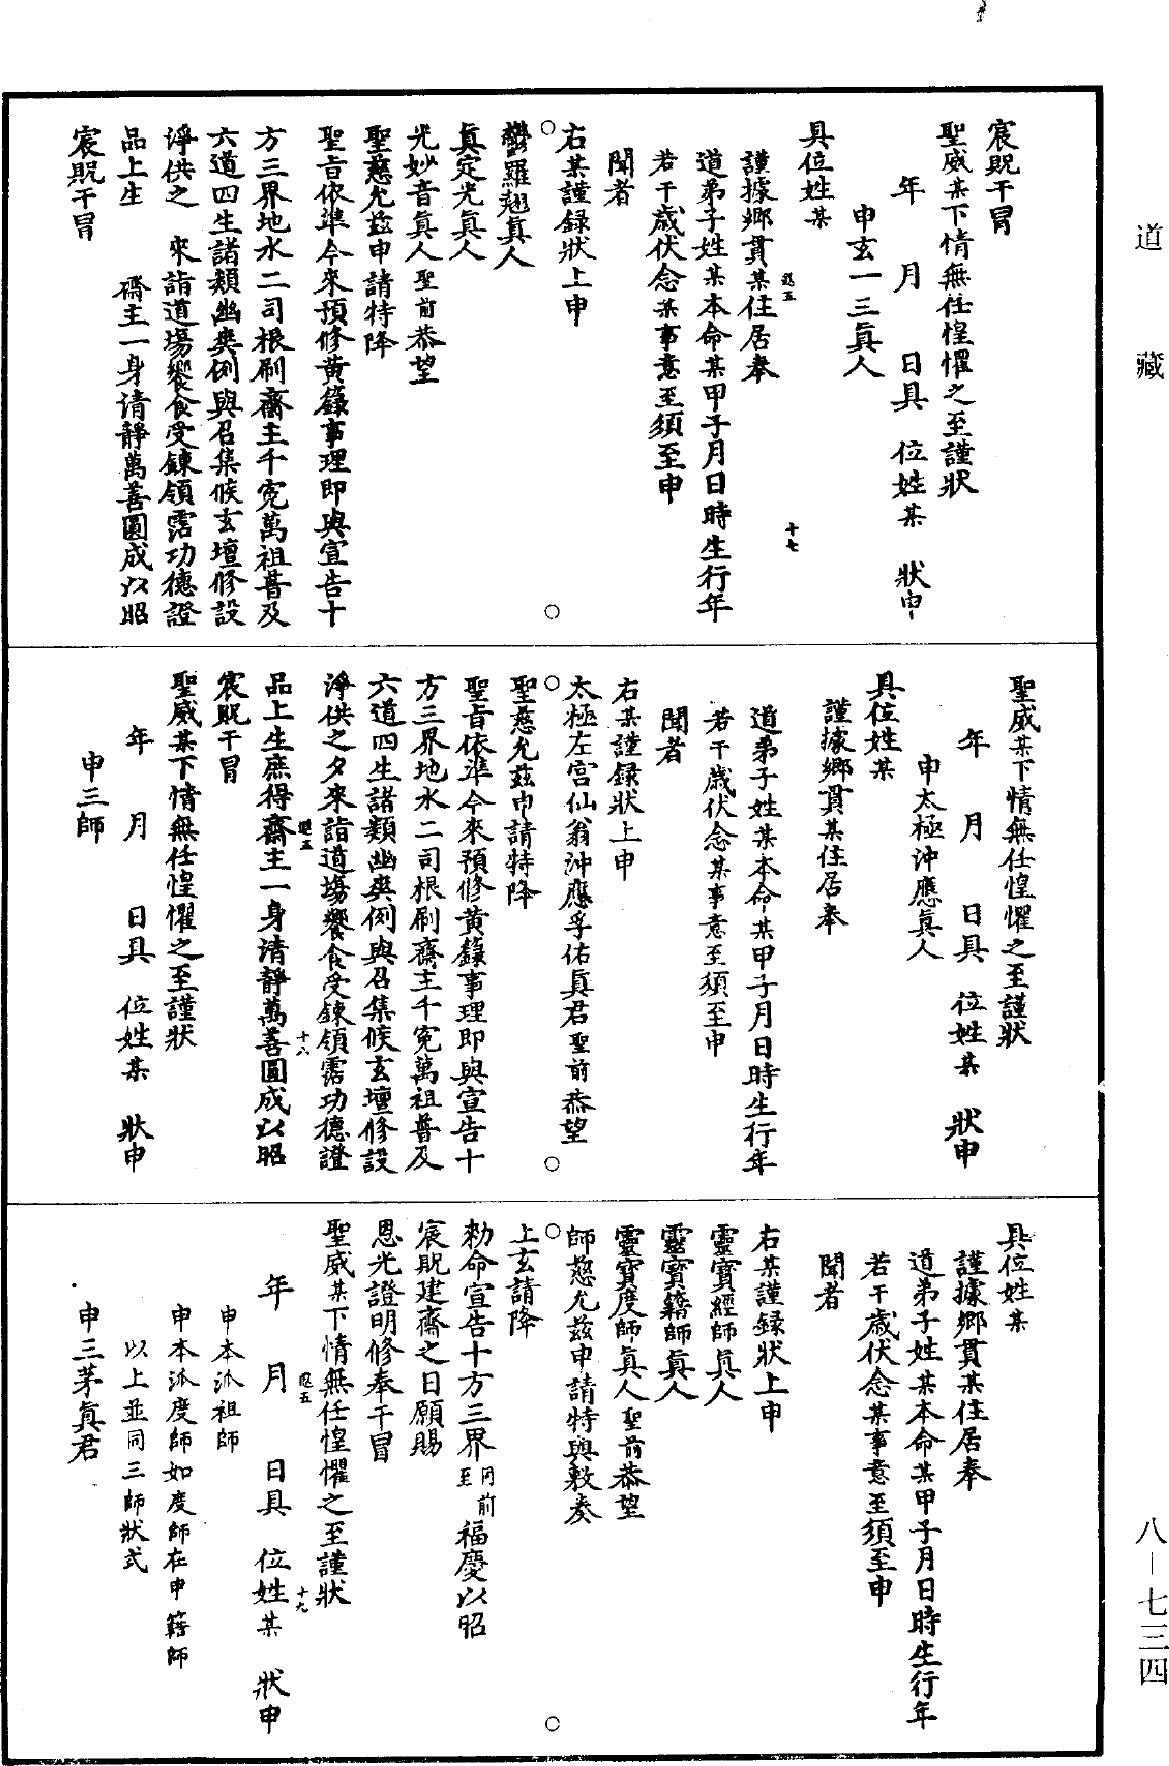 道藏
八—七三四
宸眖干冒
聖威某下情無任惶懼之至謹狀
年　月　日具　位姓某　狀申
申玄一三眞人
具位姓某
謹據鄉貫某住居奉
道弟子姓某本命某甲子月日時生行年
若干歲伏念某事意至須至申
聞者
右某謹録狀上申
鬱羅翹眞人
眞定光眞人
光妙音眞人聖前恭望
聖慈允兹申請特降
聖旨依準今來預修黄籙事理即與宣告十
方三界地水二司根刷齋主千寃萬祖普及
六道四生諸類幽爽例與召集候玄壇修設
淨供之　來詣道場饗食受鍊領霑功德證
品上生　　齋主一身清靜萬善圓成以昭
宸眖干冒
十七
聖威某下情無任惶懼之至謹狀
年　月　日具　位姓某　狀申
申太極沖應眞人
具位姓某
謹據鄉貫某住居奉
道弟子姓某本命某甲子月日時生行年
若干歲伏念某事意至須至申
聞者
右某謹録狀上申
太極左宮仙翁沖應孚佑眞君聖前恭望
聖慈允兹申請特降
聖旨依準今來預修黄籙事理即與宣告十
方三界地水二司根刷齋主千寃萬祖普及
六道四生諸類幽爽例與召集候玄壇修設
淨供之夕來詣道場饗食受鍊領霑功德證
品上生庶得齋主一身清靜萬善圓成以昭
宸眖干冒
聖威某下情無任惶懼之至謹狀
年　月　日具　位姓某　狀申
申三師
十八
具位姓某
謹據鄉貫某住居奉
道弟子姓某本命某甲子月日時生行年
若干歲伏念某事意至須至申
聞者
右某謹録狀上申
靈寶經師眞人
靈寶籍師眞人
靈寶度師眞人聖前恭望
師慈允兹申請特與敷奏
上玄請降
勑命宣告十方三界同前至福慶以昭
宸眖建齋之日願賜
恩光證明修奉干冒
聖威某下情無任惶懼之至謹狀
年　月　日具　位姓某　狀申
申本派祖師
申本派度師如度師在申籍師
以上並同三師狀式
申三茅眞君
十九